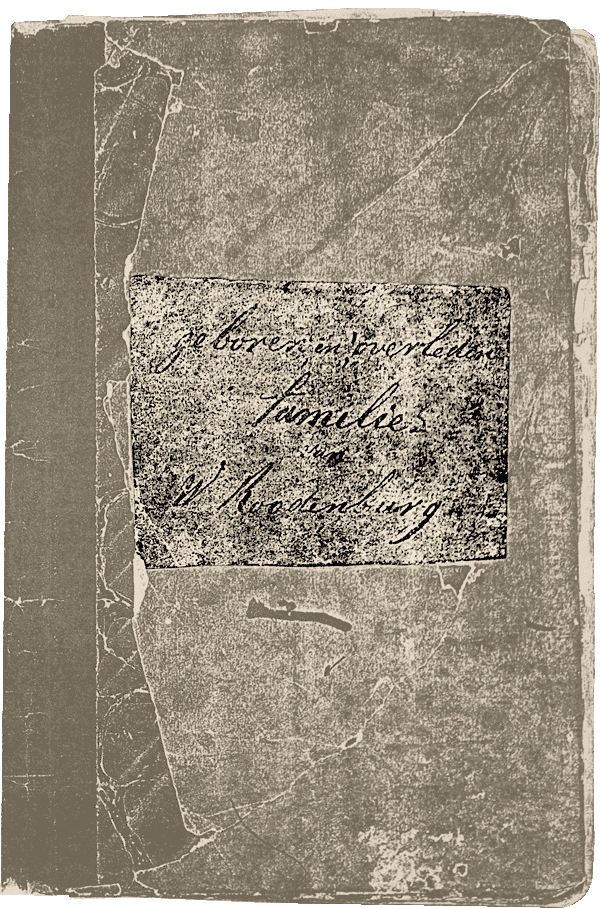 geboren en overleden
families
van
W Roodenburg